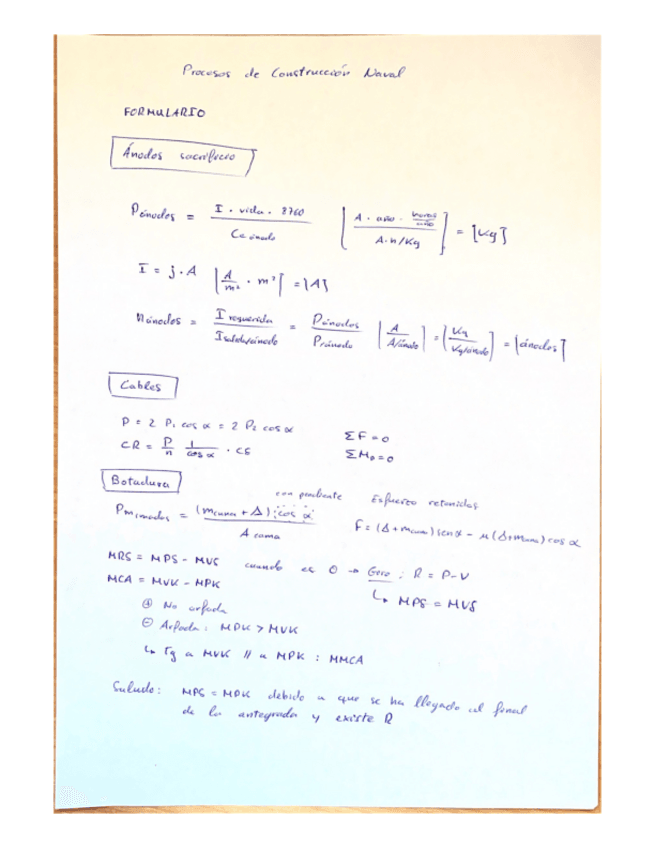 Procesos de Construcción Naval
FORMULARIO
Ánodos sacrificio
Pánodos = I · vida · 8760 / Ca ánodo [A · año · horas/año / A·h/Kg] = [Kg]
I = j · A [A/m² · m²] = [A]
Nánodos = I requerida / I salida/ánodo = Pánodos / P1ánodo [A / A/ánodo] = [Kg / Kg/ánodo] = [ánodos]
Cables
P = 2 P₁ cos α = 2 P₂ cos α ΣF = 0
CR = P/n 1/cos α · CS ΣM₀ = 0
Botadura
con pendiente Esfuerzo retenidas
Pm imados = (m cuna + Δ) cos α / A cama F = (Δ + m cuna) sen α - μ (Δ + m cuna) cos α
MRS = MPS - MVS cuando es 0 → Giro ; R = P-V
MCA = MVK - MPK ↳ MPS = MVS
⊕ No arfada
⊖ Arfada : MPK > MVK
↳ Tg a MVK // a MPK : MMCA
Saludo : MPS = MPK debido a que se ha llegado al final
de la antegrada y existe R